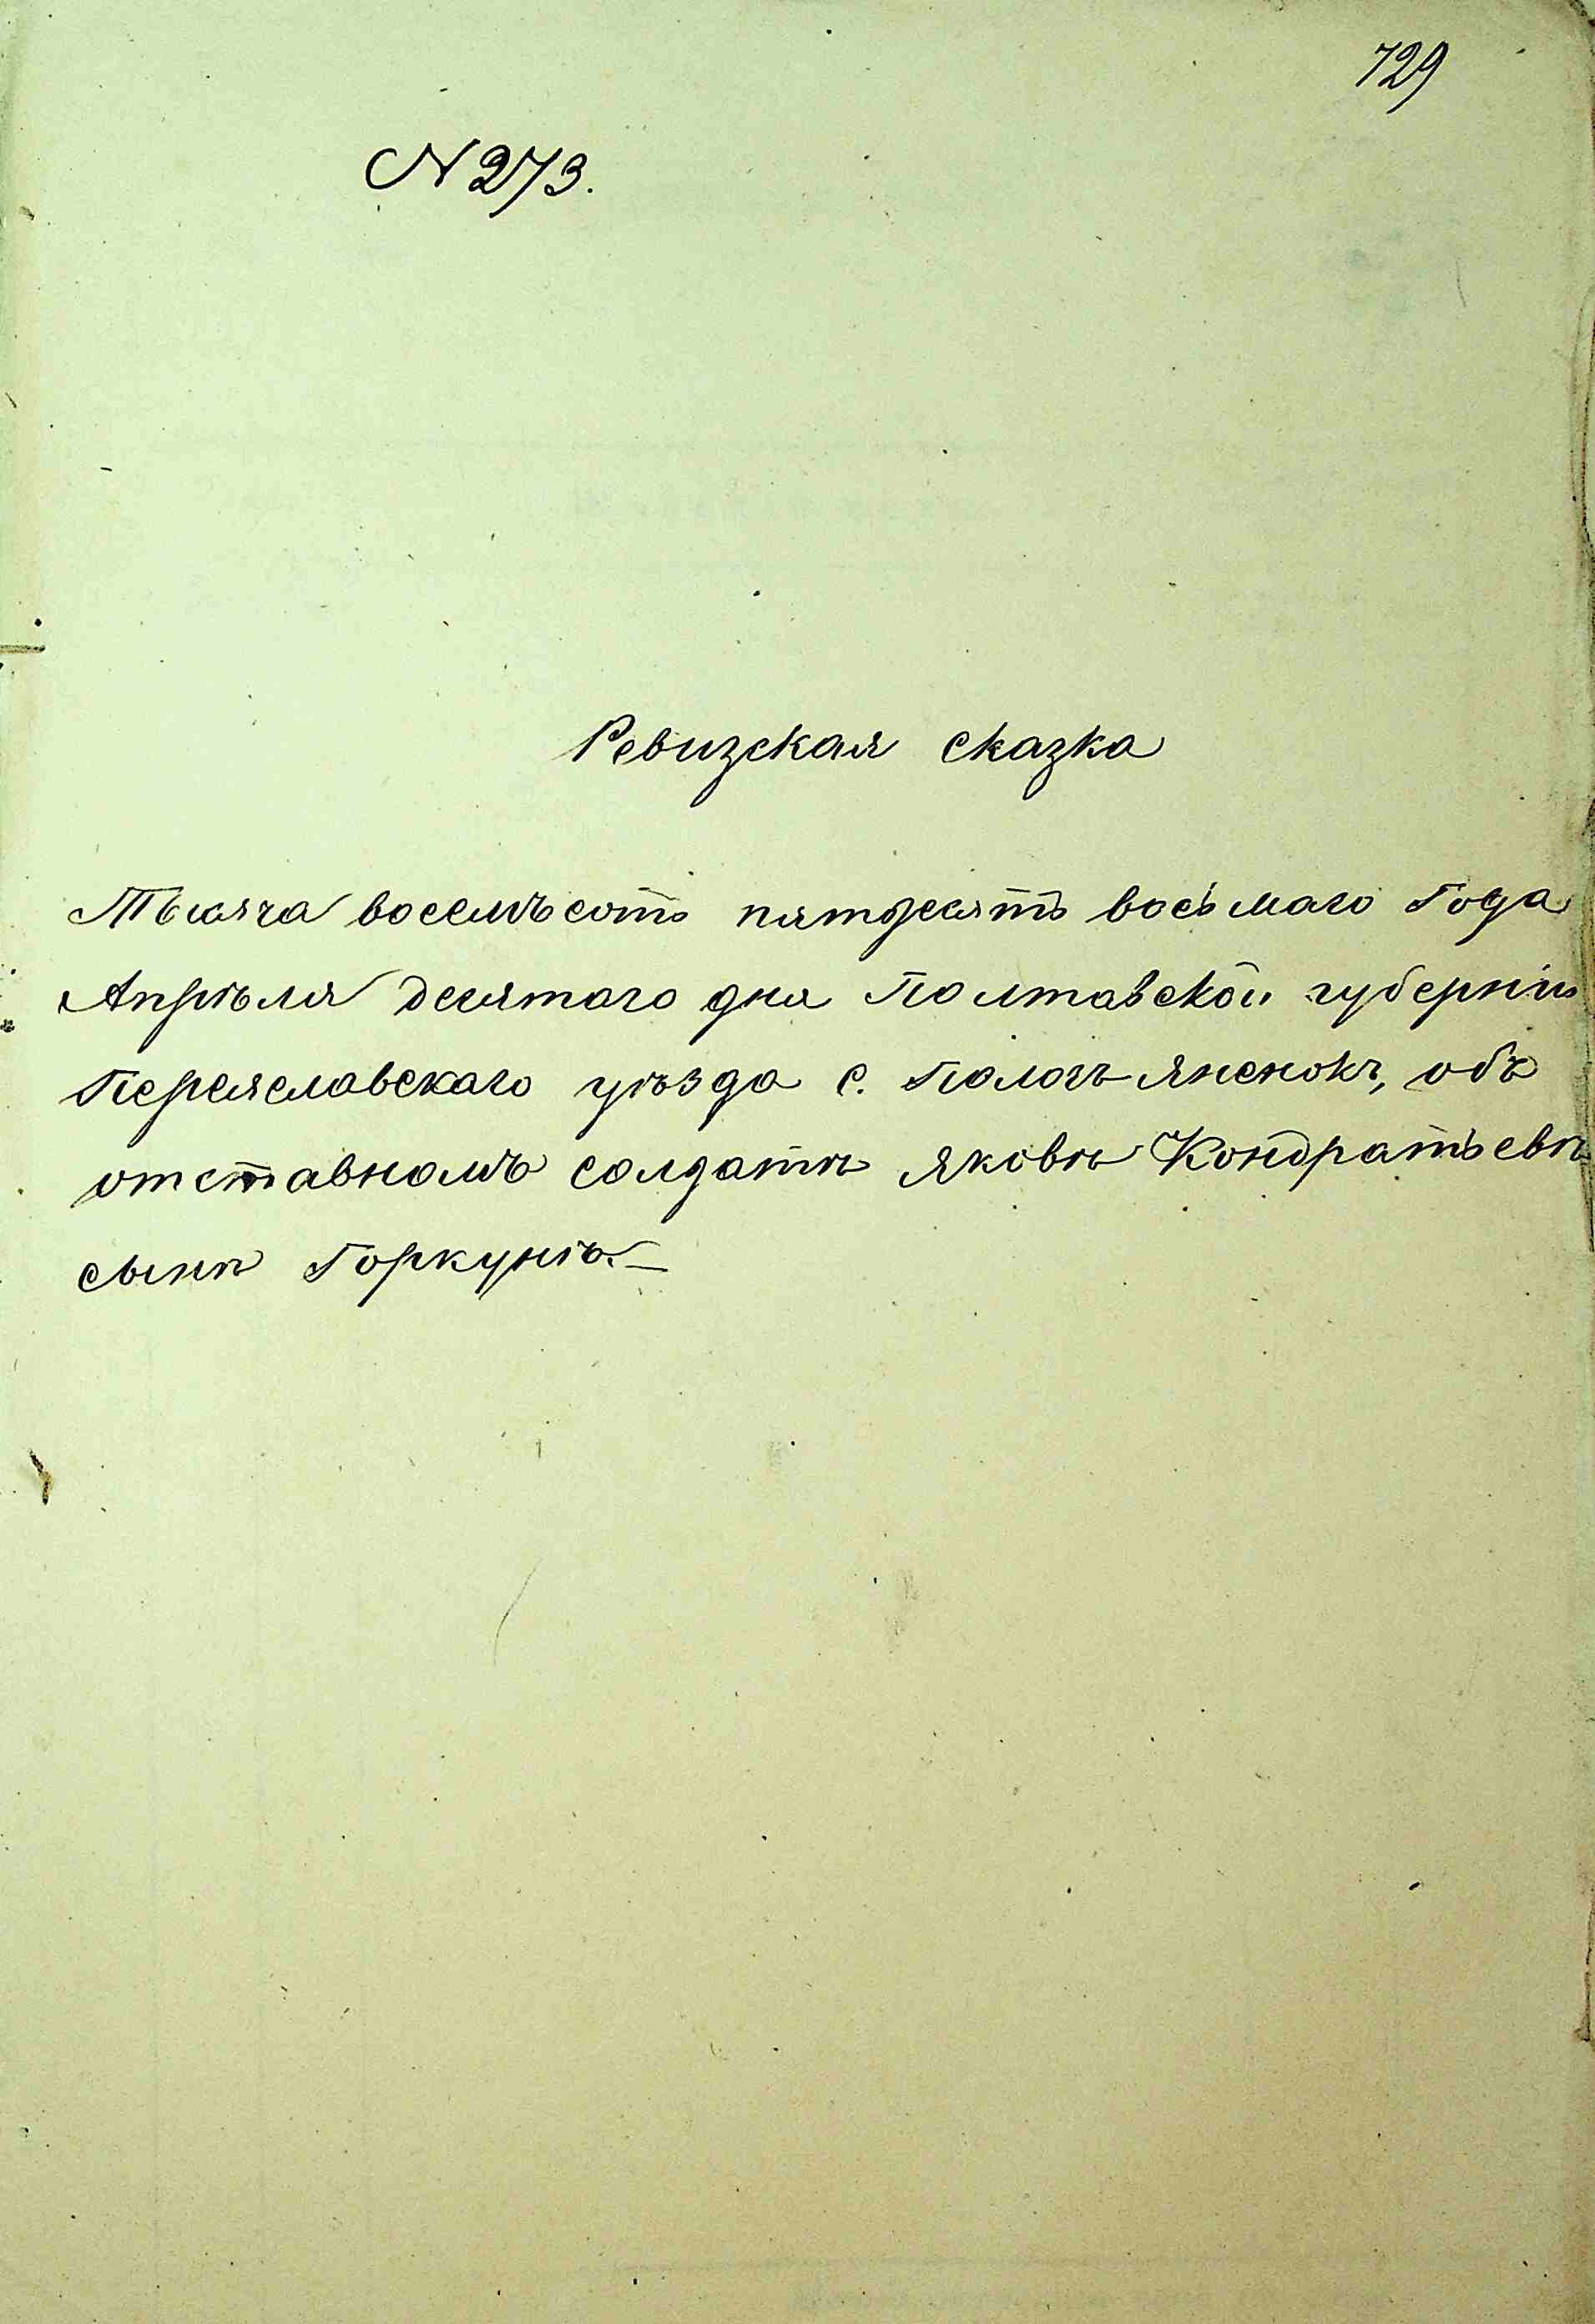 729
N 273.
Ревизская сказка
Тысяча восемьсотъ пятдесятъ восьмаго Года
Апрѣля десятаго дня Полтавской губерніи
Переяславскаго уѣзда с. Пологъ Яненокъ, объ
отставномъ солдатѣ Яковѣ Кондратьевѣ
сынѣ Горкунѣ.—